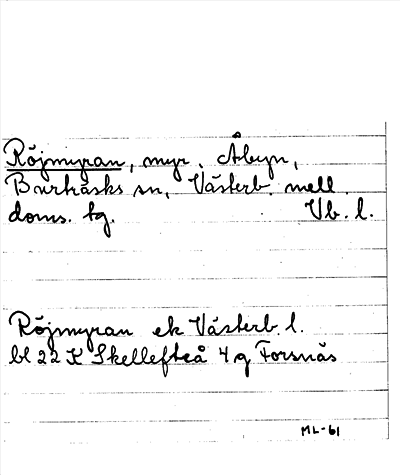 Röjmyran, myr, Åbyn,
Burträsks sn, Västerb. mell.
doms. tg. Vb. l.
Röjmyran ek Västerb. l.
bl 22 K Skellefteå 4 g Forsnäs
ML-61